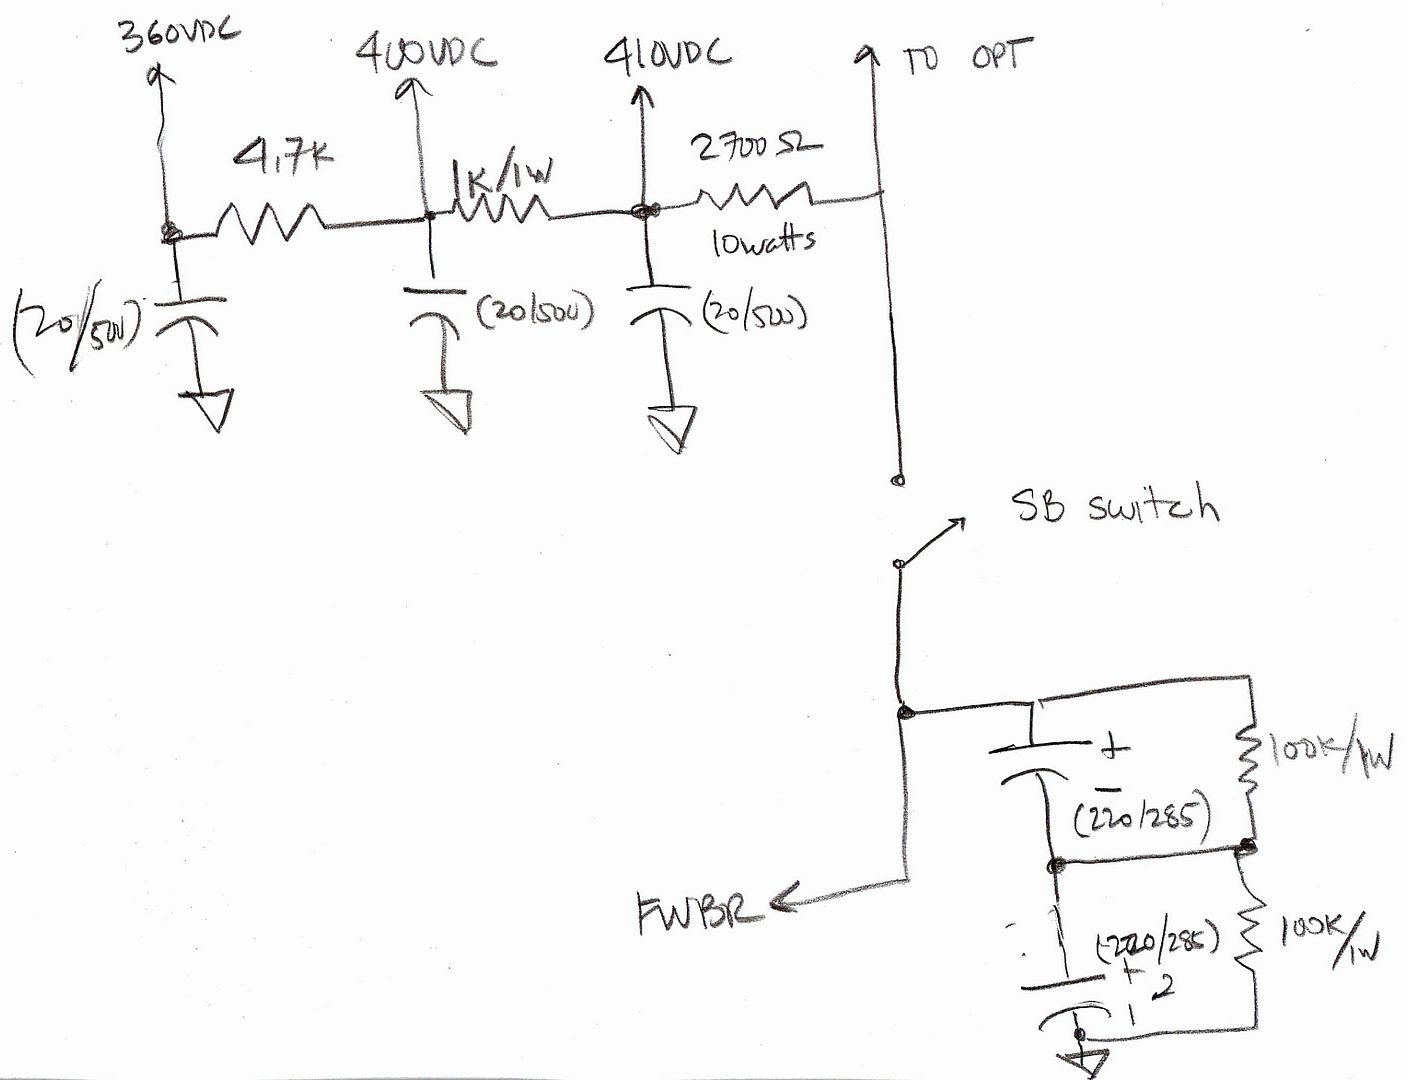 360VDC
400VDC
410VDC
TO OPT
4.7K
1K/1W
2700Ω
10watts
(20/500)
(20/500)
(20/500)
SB switch
+
100K/1W
−
(220/285)
FWBR
(220/285)
100K/1W
+
2
−